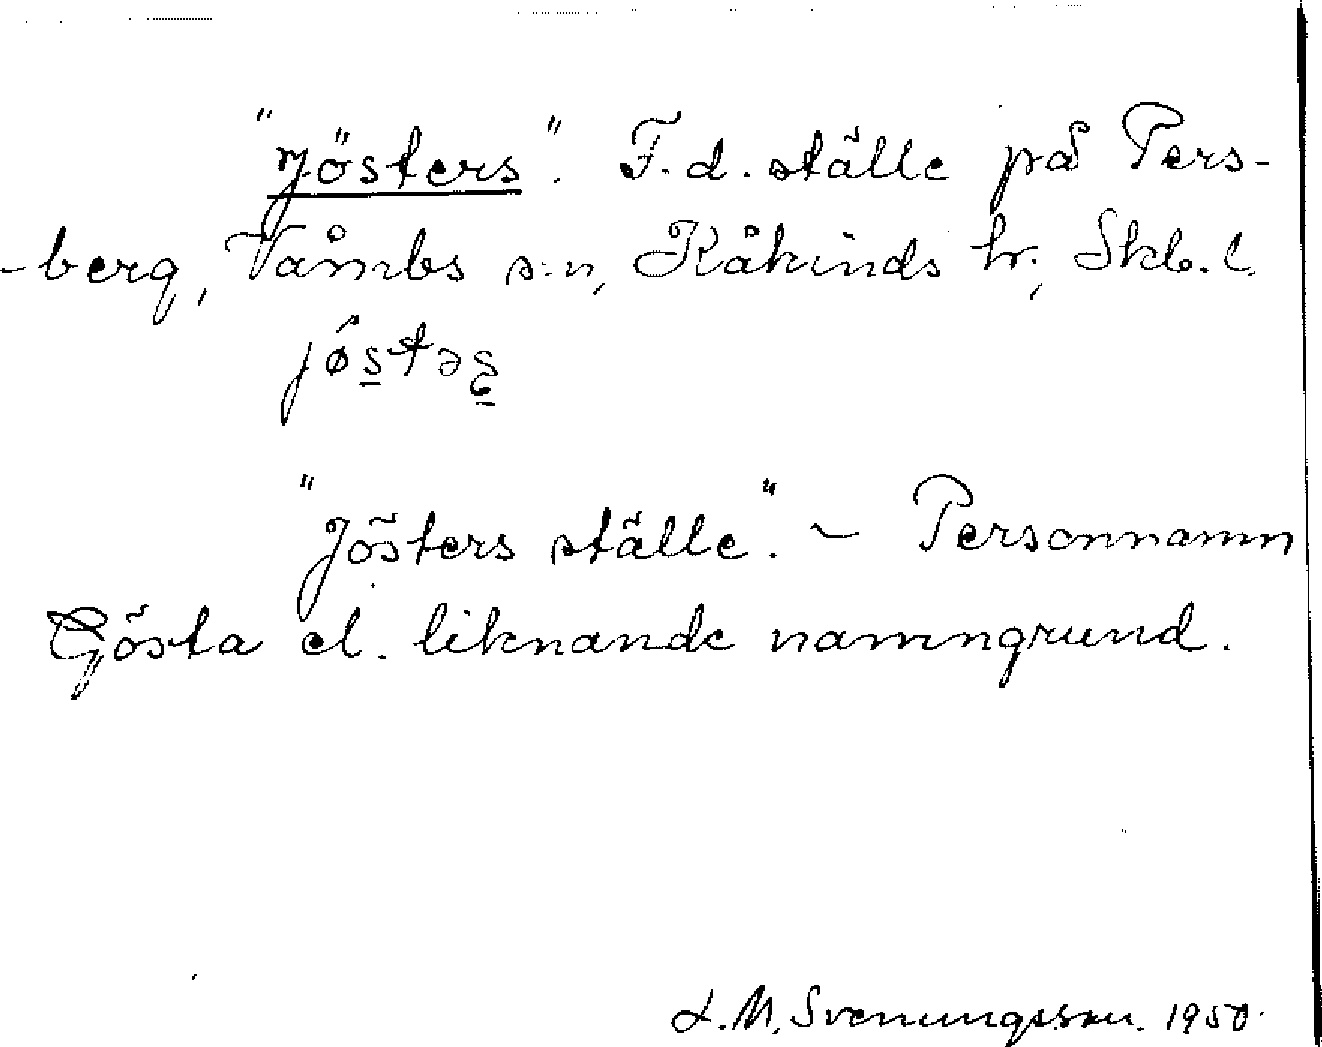 "Jösters". F.d. ställe på Pers-
-berg, Våmbs s:n, Kåkinds hr., Skb. l.
jǿstəʂ
"Jösters ställe". – Personnamn
Gösta el. liknande namngrund.
L.M. Svenungsson. 1950.